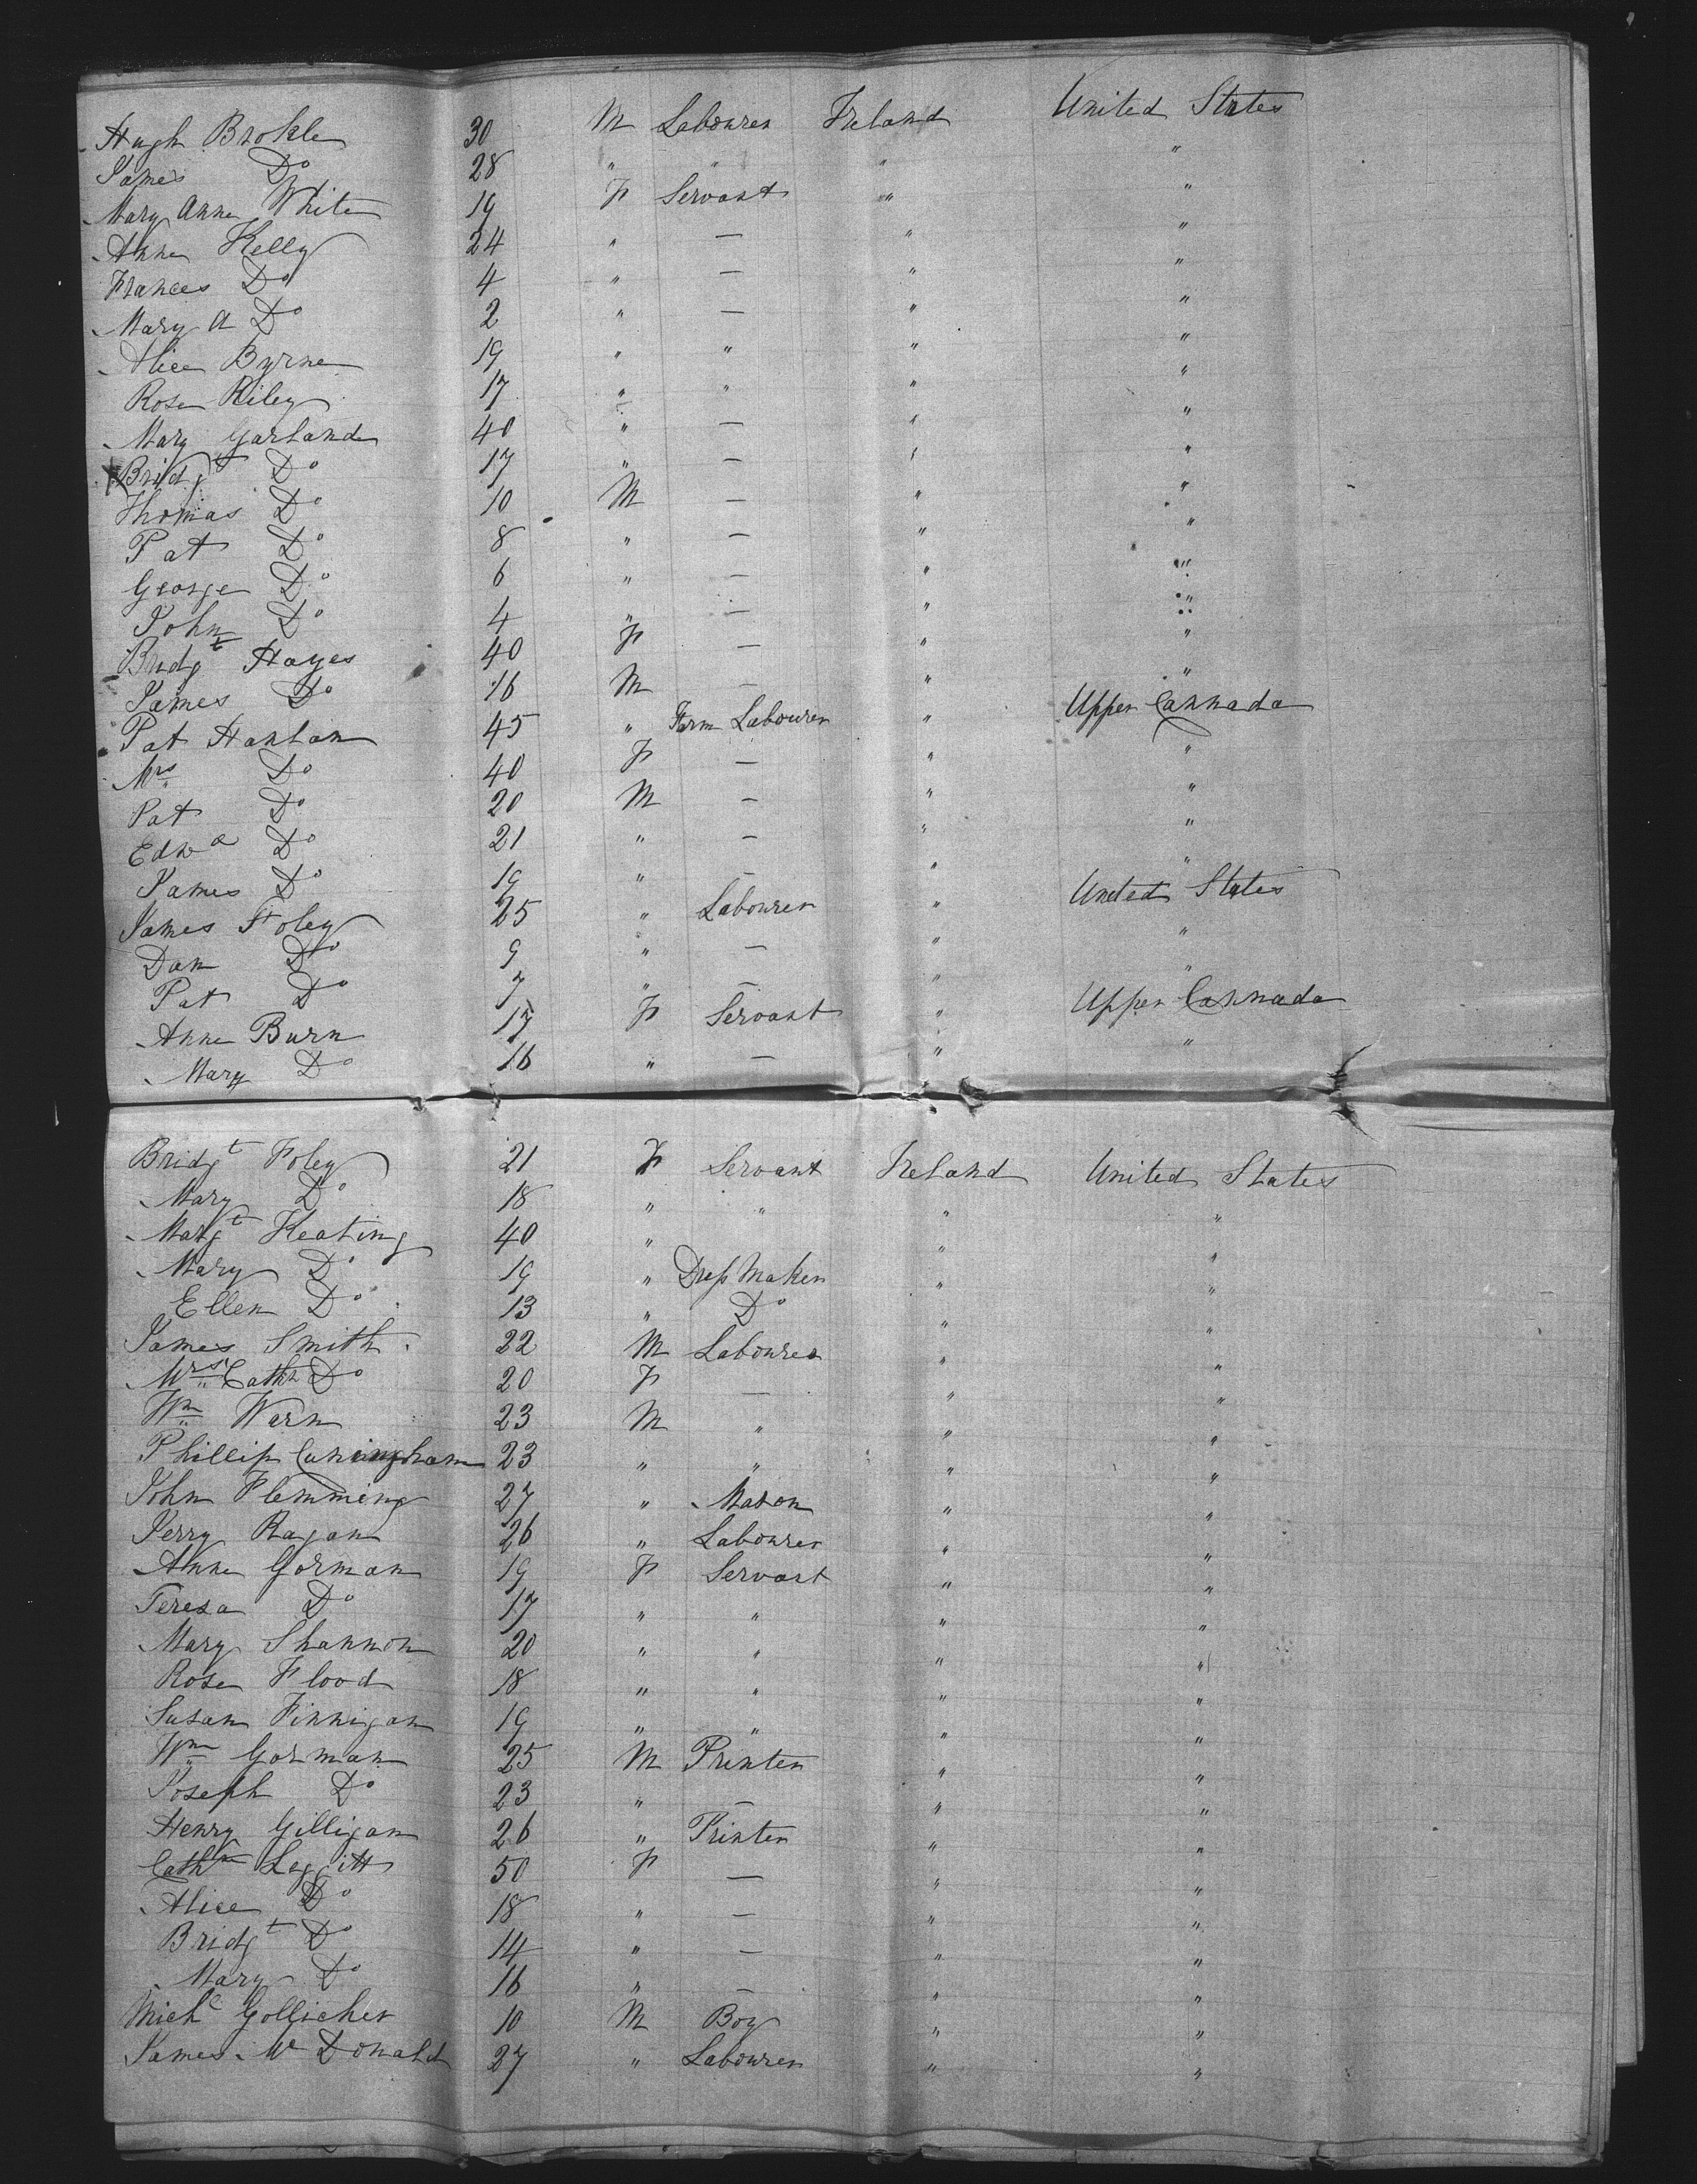 Hugh Brokle 30 M Labourer Ireland United States
James Do 28 " " " "
Mary Anne White 19 F Servant " "
Anne Kelly 24 " — " "
Frances Do 4 " — " "
Mary A Do 2 " — " "
Alice Byrne 19 " " " "
Rose Riley 17 " " " "
Mary Garland 40 " — " "
Bridgt Do 17 " — " "
Thomas Do 10 M — " "
Pat Do 8 " — " "
George Do 6 " — " "
John Do 4 " — " "
Bridgt Hayes 40 F — " "
James Do 16 M — " "
Pat Hanlan 45 " Farm Labourer " Upper Cannada
Mrs Do 40 F — " "
Pat Do 20 M — " "
Edwd Do 21 " — " "
James Do 19 " — " "
James Foley 25 " Labourer " United States
Dan Do 9 " — " "
Pat Do 7 " — " "
Anne Burn 17 F Servant " Upper Cannada
Mary Do 16 " — " "
Bridgt Foley 21 F Servant Ireland United States
Mary Do 18 " " " "
Margt Keating 40 " " "
Mary Do 19 " Dress Maker " "
Ellen Do 13 " Do " "
James Smith 22 M Labourer " "
Mrs Cathe Do 20 F — " "
Wm Warn 23 M " " "
Phillip Cuningham 23 " " " "
John Flemming 27 " Mason " "
Jerry Ragan 26 " Labourer " "
Anne Gorman 19 F Servant " "
Teresa Do 17 " " " "
Mary Shannon 20 " " " "
Rose Flood 18 " " " "
Susan Finnigan 19 " " " "
Wm Gorman 25 M Printer " "
Joseph Do 23 " — " "
Henry Gilligan 26 " Printer " "
Cathn Leggitt 50 F — " "
Alice Do 18 " — " "
Bridgt Do 14 " — " "
Mary Do 16 " — " "
Michl Gollicher 10 M Boy " "
James McDonald 27 " Labourer " "